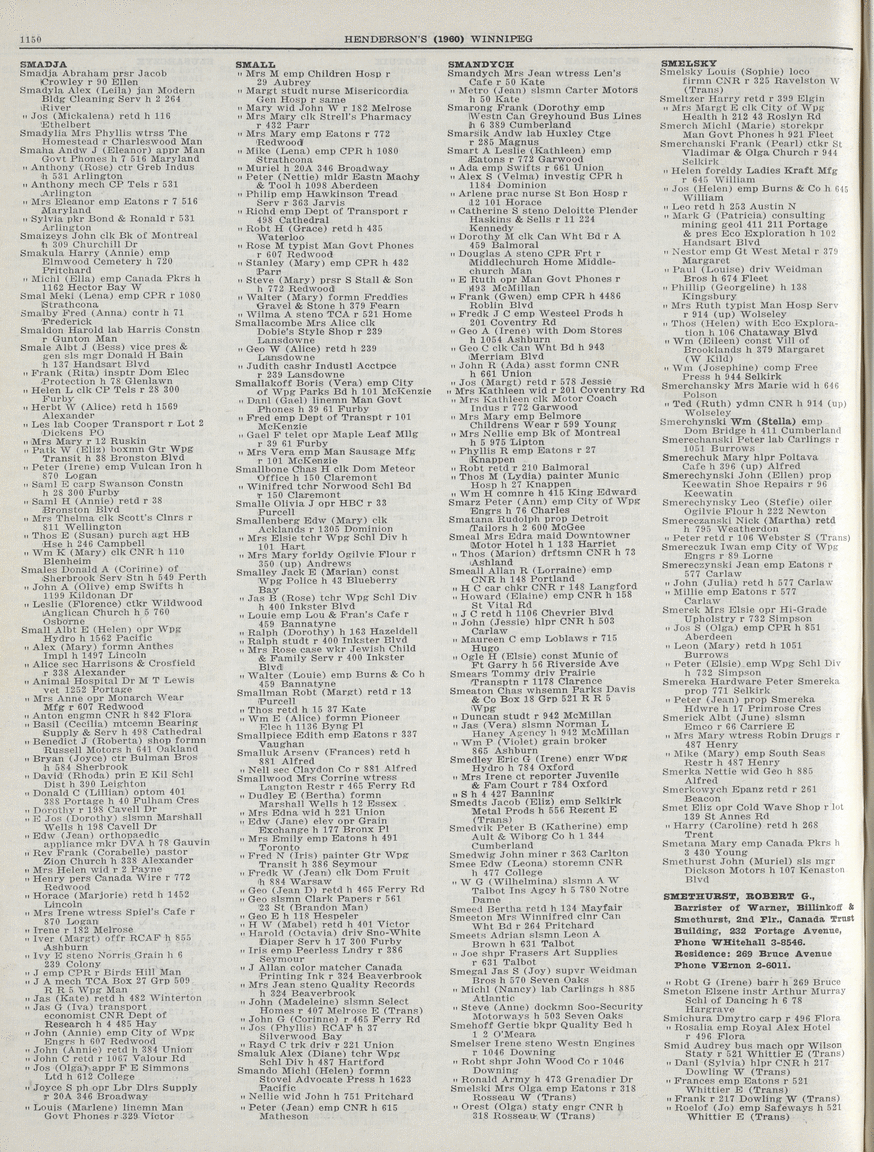 1150
HENDERSON'S (1960) WINNIPEG
SMADJA
Smadja Abraham prsr Jacob
Crowley r 90 Ellen
Smadyla Alex (Leila) jan Modern
Bldg Cleaning Serv h 2 264
River
" Jos (Mickalena) retd h 116
Ethelbert
Smadylia Mrs Phyllis wtrss The
Homestead r Charleswood Man
Smaha Andw J (Eleanor) appr Man
Govt Phones h 7 516 Maryland
" Anthony (Rose) ctr Greb Indus
h 531 Arlington
" Anthony mech CP Tels r 531
Arlington
" Mrs Eleanor emp Eatons r 7 516
Maryland
" Sylvia pkr Bond & Ronald r 531
Arlington
Smaizeys John clk Bk of Montreal
h 309 Churchill Dr
Smakula Harry (Annie) emp
Elmwood Cemetery h 720
Pritchard
" Michl (Ella) emp Canada Pkrs h
1162 Hector Bay W
Smal Meki (Lena) emp CPR r 1080
Strathcona
Smalby Fred (Anna) contr h 71
Frederick
Smaldon Harold lab Harris Constn
r Gunton Man
Smale Albt J (Bess) vice pres &
gen sls mgr Donald H Bain
h 137 Handsart Blvd
" Frank (Rita) insptr Dom Elec
Protection h 78 Glenlawn
" Helen L clk CP Tels r 28 300
Furby
" Herbt W (Alice) retd h 1569
Alexander
" Les lab Cooper Transport r Lot 2
Dickens PO
" Mrs Mary r 12 Ruskin
" Patk W (Eliz) boxmn Gtr Wpg
Transit h 38 Bronston Blvd
" Peter (Irene) emp Vulcan Iron h
870 Logan
" Saml E carp Swanson Constn
h 28 300 Furby
" Saml H (Annie) retd r 38
Bronston Blvd
" Mrs Thelma clk Scott's Clnrs r
811 Wellington
" Thos E (Susan) purch agt HB
Hse h 246 Campbell
" Wm K (Mary) clk CNR h 110
Blenheim
Smales Donald A (Corinne) of
Sherbrook Serv Stn h 549 Perth
" John A (Olive) emp Swifts h
1199 Kildonan Dr
" Leslie (Florence) ctkr Wildwood
Anglican Church h 5 760
Osborne
Small Albt E (Helen) opr Wpg
Hydro h 1562 Pacific
" Alex (Mary) formn Anthes
Impl h 1497 Lincoln
" Alice sec Harrisons & Crosfield
r 338 Alexander
" Animal Hospital Dr M T Lewis
vet 1252 Portage
" Mrs Anne opr Monarch Wear
Mfg r 607 Redwood
" Anton engmn CNR h 842 Flora
" Basil (Cecilia) mtcemn Bearing
Supply & Serv h 498 Cathedral
" Benedict J (Roberta) shop formn
Russell Motors h 641 Oakland
" Bryan (Joyce) ctr Bulman Bros
h 584 Sherbrook
" David (Rhoda) prin E Kil Schl
Dist h 390 Leighton
" Donald C (Lillian) optom 401
388 Portage h 40 Fulham Cres
" Dorothy r 198 Cavell Dr
" E Jos (Dorothy) slsmn Marshall
Wells h 198 Cavell Dr
" Edw (Jean) orthopaedic
appliance mkr DVA h 78 Gauvin
" Rev Frank (Corabelle) pastor
Zion Church h 338 Alexander
" Mrs Helen wid r 2 Payne
" Henry pers Canada Wire r 772
Redwood
" Horace (Marjorie) retd h 1452
Lincoln
" Mrs Irene wtress Spiel's Cafe r
870 Logan
" Irene r 182 Melrose
" Iver (Margt) offr RCAF h 855
Ashburn
" Ivy E steno Norris Grain h 6
239 Colony
" J emp CPR r Birds Hill Man
" J A mech TCA Box 27 Grp 509
R R 5 Wpg Man
" Jas (Kate) retd h 482 Winterton
" Jas G (Iva) transport
economist CNR Dept of
Research h 4 485 Hay
" John (Annie) emp City of Wpg
Engrs h 607 Redwood
" John (Annie) retd h 384 Union
" John C retd r 1067 Valour Rd
" Jos (Olga) appr F E Simmons
Ltd h 612 College
" Joyce S ph opr Lbr Dlrs Supply
r 20A 346 Broadway
" Louis (Marlene) linemn Man
Govt Phones r 329 Victor
SMALL
" Mrs M emp Children Hosp r
29 Aubrey
" Margt studt nurse Misericordia
Gen Hosp r same
" Mary wid John W r 182 Melrose
" Mrs Mary clk Strell's Pharmacy
r 432 Parr
" Mrs Mary emp Eatons r 772
Redwood
" Mike (Lena) emp CPR h 1080
Strathcona
" Muriel h 20A 346 Broadway
" Peter (Nettie) mldr Eastn Machy
& Tool h 1098 Aberdeen
" Philip emp Hawkinson Tread
Serv r 363 Jarvis
" Richd emp Dept of Transport r
498 Cathedral
" Robt H (Grace) retd h 435
Waterloo
" Rose M typist Man Govt Phones
r 607 Redwood
" Stanley (Mary) emp CPR h 432
Parr
" Steve (Mary) prsr S Stall & Son
h 772 Redwood
" Walter (Mary) formn Freddies
Gravel & Stone h 379 Fearn
" Wilma A steno TCA r 521 Home
Smallacombe Mrs Alice clk
Dobie's Style Shop r 239
Lansdowne
" Geo W (Alice) retd h 239
Lansdowne
" Judith cashr Industl Acctpce
r 239 Lansdowne
Smallakoff Boris (Vera) emp City
of Wpg Parks Bd h 101 McKenzie
" Danl (Gael) linemn Man Govt
Phones h 39 61 Furby
" Fred emp Dept of Transpt r 101
McKenzie
" Gael F telet opr Maple Leaf Mllg
r 39 61 Furby
" Mrs Vera emp Man Sausage Mfg
r 101 McKenzie
Smallbone Chas H clk Dom Meteor
Office h 150 Claremont
" Winifred tchr Norwood Schl Bd
r 150 Claremont
Smale Olivia J opr HBC r 33
Purcell
Smallenberg Edw (Mary) clk
Acklands r 1305 Dominion
" Mrs Elsie tchr Wpg Schl Div h
101 Hart
" Mrs Mary forldy Ogilvie Flour r
350 (up) Andrews
Smalley Jack E (Marian) const
Wpg Police h 43 Blueberry
Bay
" Jas B (Rose) tchr Wpg Schl Div
h 400 Inkster Blvd
" Louie emp Lou & Fran's Cafe r
459 Bannatyne
" Ralph (Dorothy) h 163 Hazeldell
" Ralph studt r 400 Inkster Blvd
" Mrs Rose case wkr Jewish Child
& Family Serv r 400 Inkster
Blvd
" Walter (Louie) emp Burns & Co h
459 Bannatyne
Smallman Robt (Margt) retd r 13
Purcell
" Thos retd h 15 37 Kate
" Wm E (Alice) formn Pioneer
Elec h 1136 Byng Pl
Smallpiece Edith emp Eatons r 337
Vaughan
Smalluk Arsenv (Frances) retd h
881 Alfred
" Nell sec Claydon Co r 881 Alfred
Smallwood Mrs Corrine wtress
Langton Restr r 465 Ferry Rd
" Dudley E (Bertha) formn
Marshall Wells h 12 Essex
" Mrs Edna wid h 221 Union
" Edw (Jane) elev opr Grain
Exchange h 177 Bronx Pl
" Mrs Emily emp Eatons h 491
Toronto
" Fred N (Iris) painter Gtr Wpg
Transit h 386 Seymour
" Fredk W (Jean) clk Dom Fruit
h 884 Warsaw
" Geo (Jean D) retd h 465 Ferry Rd
" Geo slsmn Clark Papers r 561
23 St (Brandon Man)
" Geo E h 118 Hespeler
" H W (Mabel) retd h 401 Victor
" Harold (Octavia) driv Sno-White
Diaper Serv h 17 300 Furby
" Iris emp Peerless Lndry r 386
Seymour
" J Allan color matcher Canada
Printing Ink r 324 Beaverbrook
" Mrs Jean steno Quality Records
h 324 Beaverbrook
" John (Madeleine) slsmn Select
Homes r 407 Melrose E (Trans)
" John G (Corinne) r 465 Ferry Rd
" Jos (Phyllis) RCAF h 37
Silverwood Bay
" Rayd C trk driv r 221 Union
Smaluk Alex (Diane) tchr Wpg
Schl Div h 487 Hartford
Smando Michl (Helen) formn
Stovel Advocate Press h 1623
Pacific
" Nellie wid John h 751 Pritchard
" Peter (Jean) emp CNR h 615
Matheson
SMANDYCH
Smandych Mrs Jean wtress Len's
Cafe r 50 Kate
" Metro (Jean) slsmn Carter Motors
h 50 Kate
Smarong Frank (Dorothy emp
Westn Can Greyhound Bus Lines
h 6 389 Cumberland
Smarsik Andw lab Huxley Ctge
r 285 Magnus
Smart A Leslie (Kathleen) emp
Eatons r 772 Garwood
" Ada emp Swifts r 661 Union
" Alex S (Velma) investig CPR h
1184 Dominion
" Arlene prac nurse St Bon Hosp r
12 101 Horace
" Catherine S steno Deloitte Plender
Haskins & Sells r 11 224
Kennedy
" Dorothy M clk Can Wht Bd r A
459 Balmoral
" Douglas A steno CPR Frt r
Middlechurch Home Middle-
church Man
" E Ruth opr Man Govt Phones r
493 McMillan
" Frank (Gwen) emp CPR h 4486
Roblin Blvd
" Fredk J C emp Westeel Prods h
201 Coventry Rd
" Geo A (Irene) with Dom Stores
h 1054 Ashburn
" Geo C clk Can Wht Bd h 943
Merriam Blvd
" John R (Ada) asst formn CNR
h 661 Union
" Jos (Margt) retd r 578 Jessie
" Mrs Kathleen wid r 201 Coventry Rd
" Mrs Kathleen clk Motor Coach
Indus r 772 Garwood
" Mrs Mary emp Belmore
Childrens Wear r 599 Young
" Mrs Nellie emp Bk of Montreal
h 5 975 Lipton
" Phyllis R emp Eatons r 27
Knappen
" Robt retd r 210 Balmoral
" Thos M (Lydia) painter Munic
Hosp h 27 Knappen
" Wm H comnre h 415 King Edward
Smarz Peter (Ann) emp City of Wpg
Engrs h 76 Charles
Smatana Rudolph prop Detroit
Tailors h 2 600 McGee
Smeal Mrs Edra maid Downtowner
Motor Hotel h 1 133 Harriet
" Thos (Maron) drftsmn CNR h 73
Ashland
Smeall Allan R (Lorraine) emp
CNR h 148 Portland
" H C car chkr CNR r 148 Langford
" Howard (Elaine) emp CNR h 158
St Vital Rd
" J C retd h 1106 Chevrier Blvd
" John (Jessie) hlpr CNR h 503
Carlaw
" Maureen C emp Loblaws r 715
Hugo
" Ogle H (Elsie) const Munic of
Ft Garry h 56 Riverside Ave
Smears Tommy driv Prairie
Transptn r 1178 Clarence
Smeaton Chas whsemn Parks Davis
& Co Box 18 Grp 521 R R 5
Wpg
" Duncan studt r 942 McMillan
" Jas (Vera) slsmn Norman L
Haney Agency h 942 McMillan
" Wm P (Violet) grain broker
865 Ashburn
Smedley Eric G (Irene) engr Wpg
Hydro h 784 Oxford
" Mrs Irene ct reporter Juvenile
& Fam Court r 784 Oxford
" S h 4 427 Banning
Smedts Jacob (Eliz) emp Selkirk
Metal Prods h 556 Regent E
(Trans)
Smedvik Peter B (Katherine) emp
Ault & Wiborg Co h 1 344
Cumberland
Smedwig John miner r 363 Carlton
Smee Edw (Leona) storemn CNR
h 477 College
" W G (Wilhelmina) slsmn A W
Talbot Ins Agcy h 5 780 Notre
Dame
Smeed Bertha retd h 134 Mayfair
Smeeton Mrs Winnifred clnr Can
Wht Bd r 264 Pritchard
Smeets Adrian slsmn Leon A
Brown h 631 Talbot
" Joe shpr Frasers Art Supplies
r 631 Talbot
Smegal Jas S (Joy) supvr Weidman
Bros h 570 Seven Oaks
" Michl (Nancy) lab Carlings h 885
Atlantic
" Steve (Anne) dockmn Soo-Security
Motorways h 503 Seven Oaks
Smehoff Gertie bkpr Quality Bed h
1 2 O'Meara
Smelser Irene steno Westn Engines
r 1046 Downing
" Robt shpr John Wood Co r 1046
Downing
" Ronald Army h 473 Grenadier Dr
Smelski Mrs Olga emp Eatons r 318
Rosseau W (Trans)
" Orest (Olga) staty engr CNR h
318 Rosseau W (Trans)
SMELSKY
Smelsky Louis (Sophie) loco
firmn CNR r 325 Ravelston W
(Trans)
Smeltzer Harry retd r 399 Elgin
" Mrs Margt E clk City of Wpg
Health h 212 43 Roslyn Rd
Smerch Michl (Marie) storekpr
Man Govt Phones h 921 Fleet
Smerchanski Frank (Pearl) ctkr St
Vladimar & Olga Church r 944
Selkirk
" Helen foreldy Ladies Kraft Mfg
r 645 William
" Jos (Helen) emp Burns & Co h 645
William
" Leo retd h 253 Austin N
" Mark G (Patricia) consulting
mining geol 411 211 Portage
& pres Eco Exploration h 102
Handsart Blvd
" Nestor emp Gt West Metal r 379
Margaret
" Paul (Louise) driv Weidman
Bros h 674 Fleet
" Phillip (Georgeline) h 138
Kingsbury
" Mrs Ruth typist Man Hosp Serv
r 914 (up) Wolseley
" Thos (Helen) with Eco Explora-
tion h 106 Chataway Blvd
" Wm (Eileen) const Vill of
Brooklands h 379 Margaret
(W Kild)
" Wm (Josephine) comp Free
Press h 944 Selkirk
Smerchansky Mrs Marie wid h 646
Polson
" Ted (Ruth) ydmn CNR h 914 (up)
Wolseley
Smerchynski Wm (Stella) emp
Dom Bridge h 411 Cumberland
Smerechanski Peter lab Carlings r
1051 Burrows
Smerechuk Mary hlpr Poltava
Cafe h 396 (up) Alfred
Smerechynski John (Ellen) prop
Keewatin Shoe Repairs r 96
Keewatin
Smerechynsky Leo (Stefie) oiler
Ogilvie Flour h 222 Newton
Smereczanski Nick (Martha) retd
h 795 Weatherdon
" Peter retd r 106 Webster S (Trans)
Smereczuk Iwan emp City of Wpg
Engrs r 89 Lorne
Smereczynski Jean emp Eatons r
577 Carlaw
" John (Julia) retd h 577 Carlaw
" Millie emp Eatons r 577
Carlaw
Smerek Mrs Elsie opr Hi-Grade
Upholstry r 732 Simpson
" Jos S (Olga) emp CPR h 851
Aberdeen
" Leon (Mary) retd h 1051
Burrows
" Peter (Elsie) emp Wpg Schl Div
h 732 Simpson
Smereka Hardware Peter Smereka
prop 771 Selkirk
" Peter (Jean) prop Smereka
Hdwre h 17 Primrose Cres
Smerick Albt (June) slsmn
Emco r 66 Carriere E
" Mrs Mary wtress Robin Drugs r
487 Henry
" Mike (Mary) emp South Seas
Restr h 487 Henry
Smerka Nettie wid Geo h 885
Alfred
Smerkowych Epanz retd r 261
Beacon
Smet Eliz opr Cold Wave Shop r lot
139 St Annes Rd
" Harry (Caroline) retd h 268
Trent
Smetana Mary emp Canada Pkrs h
3 430 Young
Smethurst John (Muriel) sls mgr
Dickson Motors h 107 Kenaston
Blvd
SMETHURST, ROBERT G.,
Barrister of Warner, Billinkoff &
Smethurst, 2nd Flr., Canada Trust
Building, 232 Portage Avenue,
Phone WHitehall 3-8546.
Residence: 269 Bruce Avenue
Phone VErnon 2-6011.
" Robt G (Irene) barr h 269 Bruce
Smeton Elzene instr Arthur Murray
Schl of Dancing h 6 78
Hargrave
Smichura Dmytro carp r 496 Flora
" Rosalia emp Royal Alex Hotel
r 496 Flora
Smid Audrey bus mach opr Wilson
Staty r 521 Whittier E (Trans)
" Danl (Sylvia) hlpr CNR h 217
Dowling W (Trans)
" Frances emp Eatons r 521
Whittier E (Trans)
" Frank r 217 Dowling W (Trans)
" Roelof (Jo) emp Safeways h 521
Whittier E (Trans)